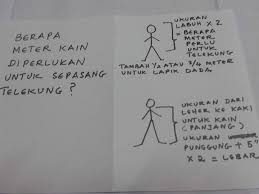 BERAPA
METER KAIN
DIPERLUKAN
UNTUK SEPASANG
TELEKUNG?
UKURAN
LABUH X 2
= BERAPA
METER
PERLU
UNTUK
TELEKUNG
TAMBAH 1/2 ATAU 3/4 METER
UNTUK LAPIK DADA
UKURAN DARI
LEHER KE KAKI
UNTUK KAIN
(PANJANG)
UKURAN
PUNGGUNG + 5"
X 2 = LEBAR